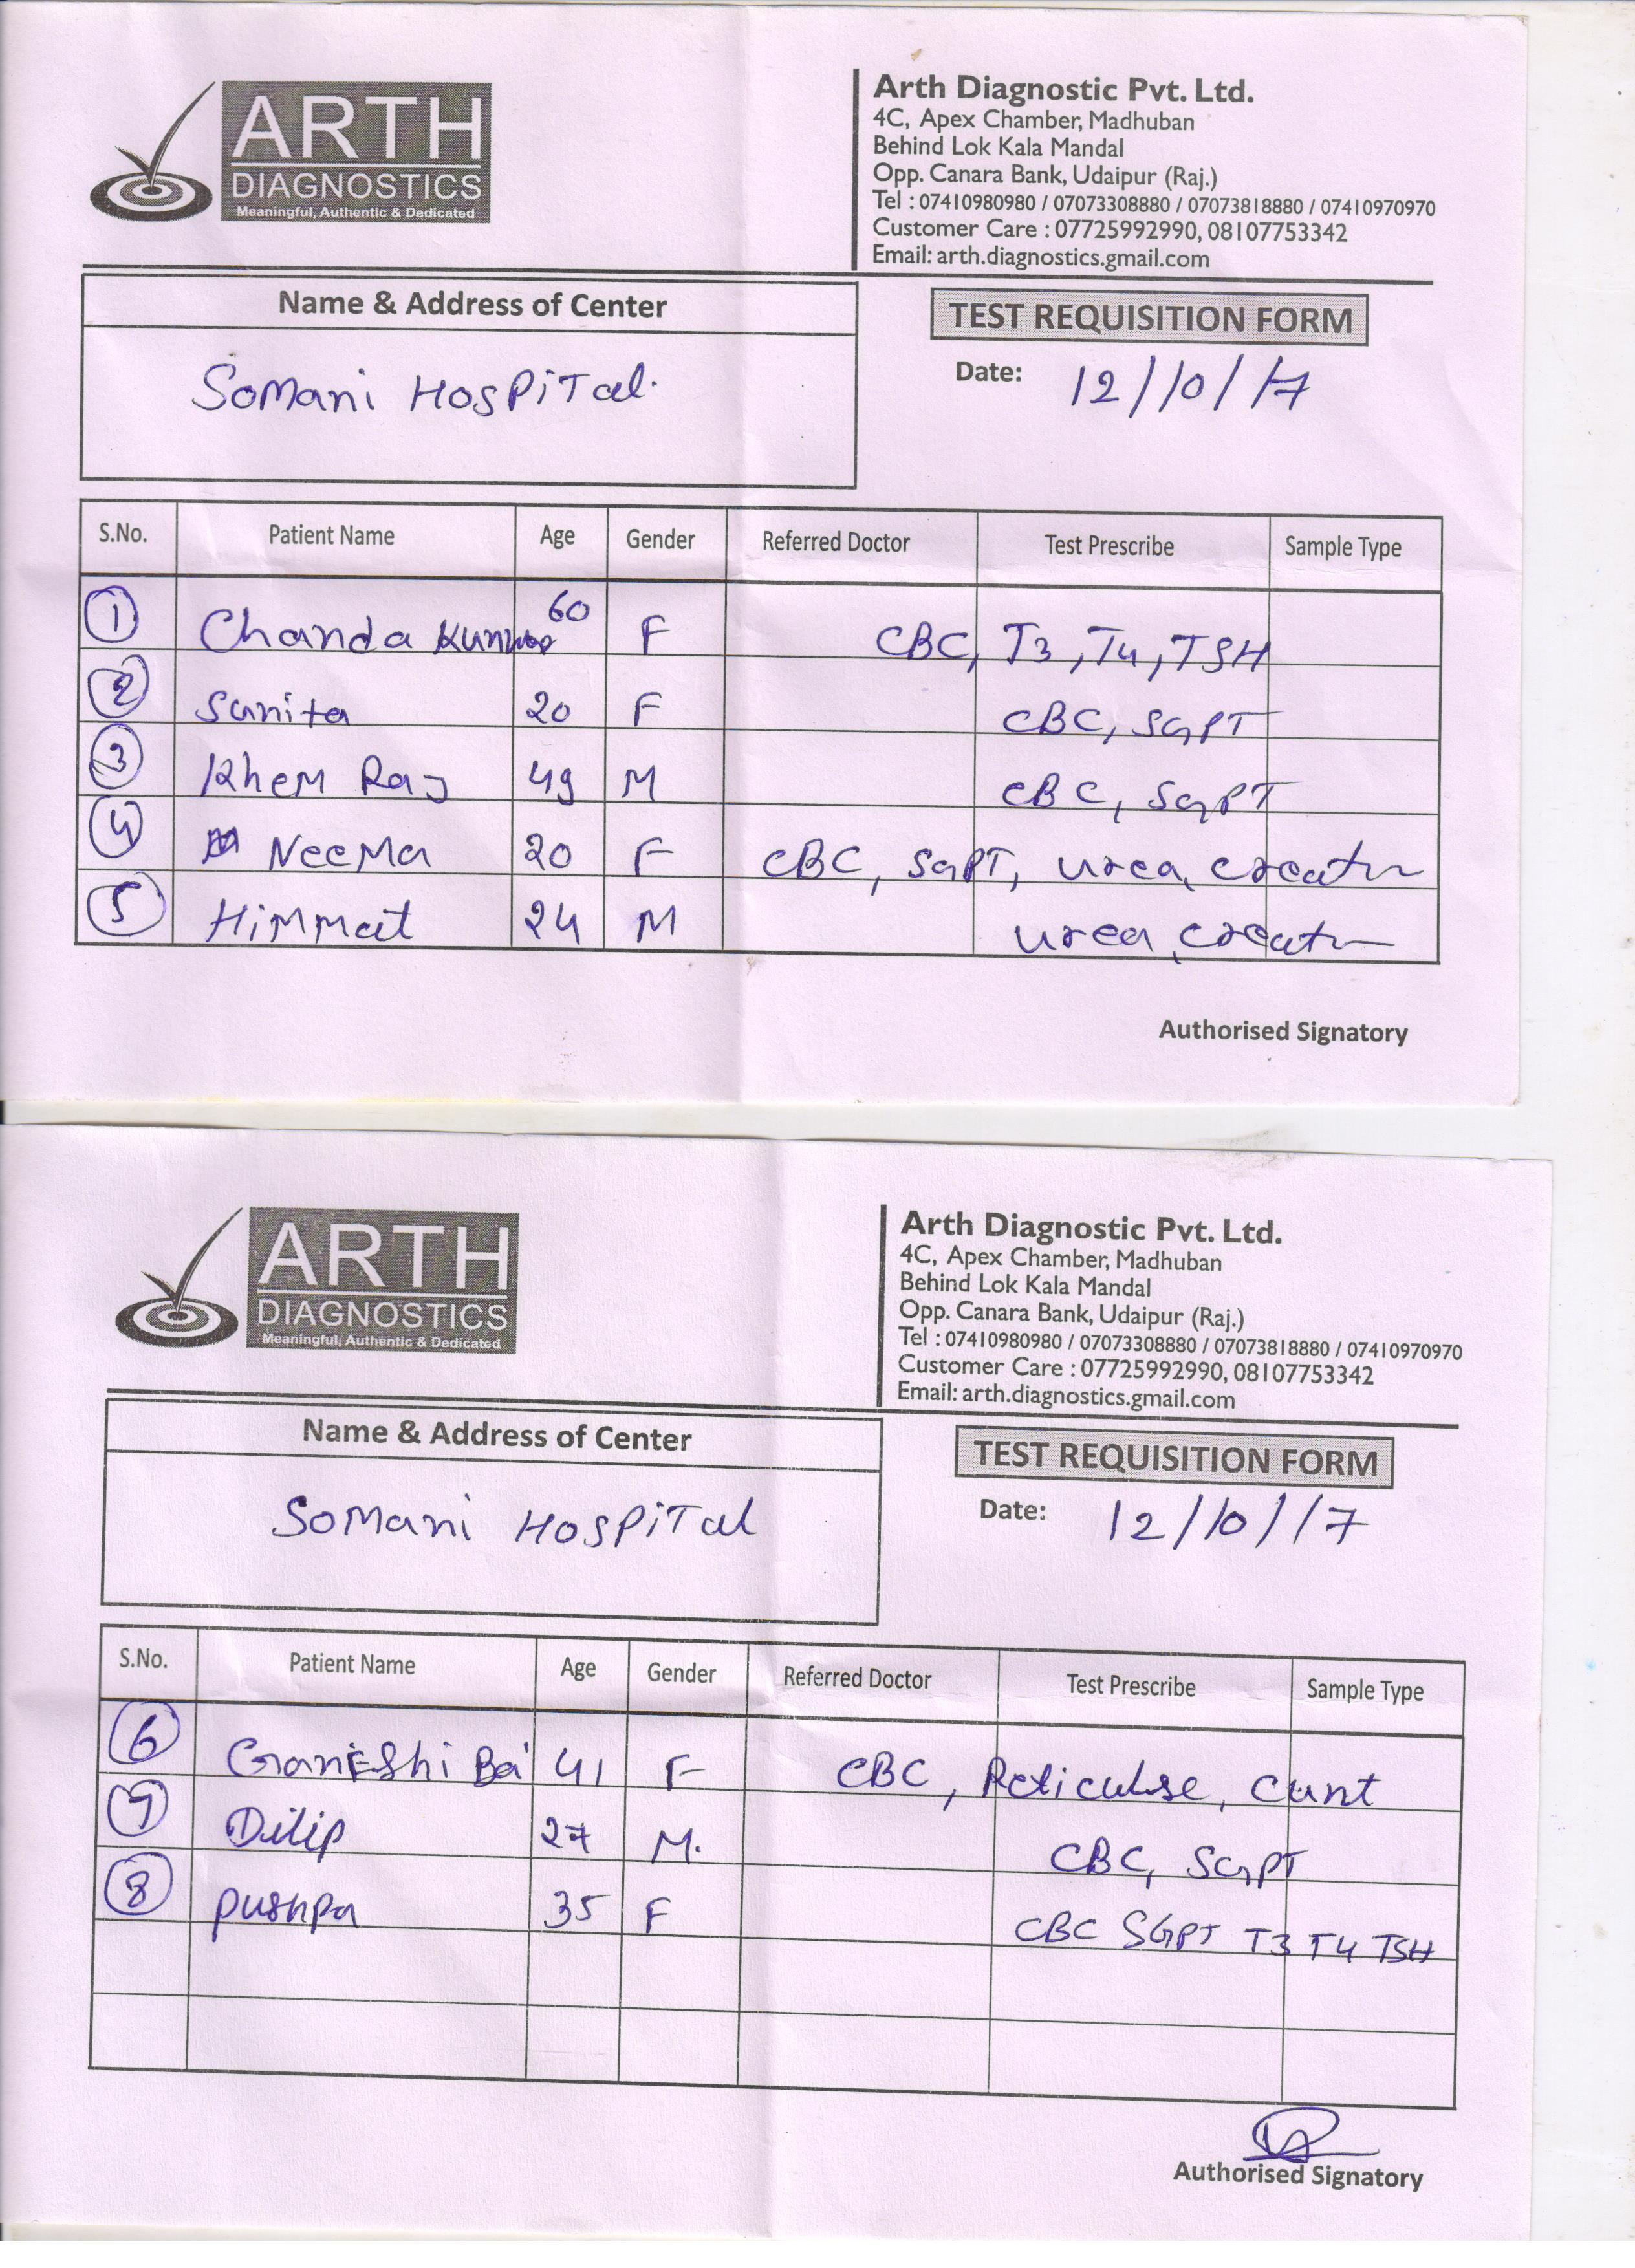 ARTH
DIAGNOSTICS
Meaningful, Authentic & Dedicated
Arth Diagnostic Pvt. Ltd.
4C, Apex Chamber, Madhuban
Behind Lok Kala Mandal
Opp. Canara Bank, Udaipur (Raj.)
Tel : 07410980980 / 07073308880 / 07073818880 / 07410970970
Customer Care : 07725992990, 08107753342
Email: arth.diagnostics.gmail.com
Name & Address of Center
TEST REQUISITION FORM
Somani Hospital.
Date: 12/10/17
S.No. Patient Name Age Gender Referred Doctor Test Prescribe Sample Type
1 Chanda 60 F CBC, T3, T4, TSH
2 Sunita 20 F CBC, SGPT
3 Khem Raj 49 M CBC, SGPT
4 Neema 20 F CBC, SGPT, urea,
5 Himmat 24 M urea,
Authorised Signatory
ARTH
DIAGNOSTICS
Meaningful, Authentic & Dedicated
Arth Diagnostic Pvt. Ltd.
4C, Apex Chamber, Madhuban
Behind Lok Kala Mandal
Opp. Canara Bank, Udaipur (Raj.)
Tel : 07410980980 / 07073308880 / 07073818880 / 07410970970
Customer Care : 07725992990, 08107753342
Email: arth.diagnostics.gmail.com
Name & Address of Center
TEST REQUISITION FORM
Somani Hospital
Date: 12/10/17
S.No. Patient Name Age Gender Referred Doctor Test Prescribe Sample Type
6 Ganeshi Bai 41 F CBC, Cunt
7 Dilip 27 M. CBC, SGPT
8 Pushpa 35 F CBC SGPT T3 T4 TSH
Authorised Signatory